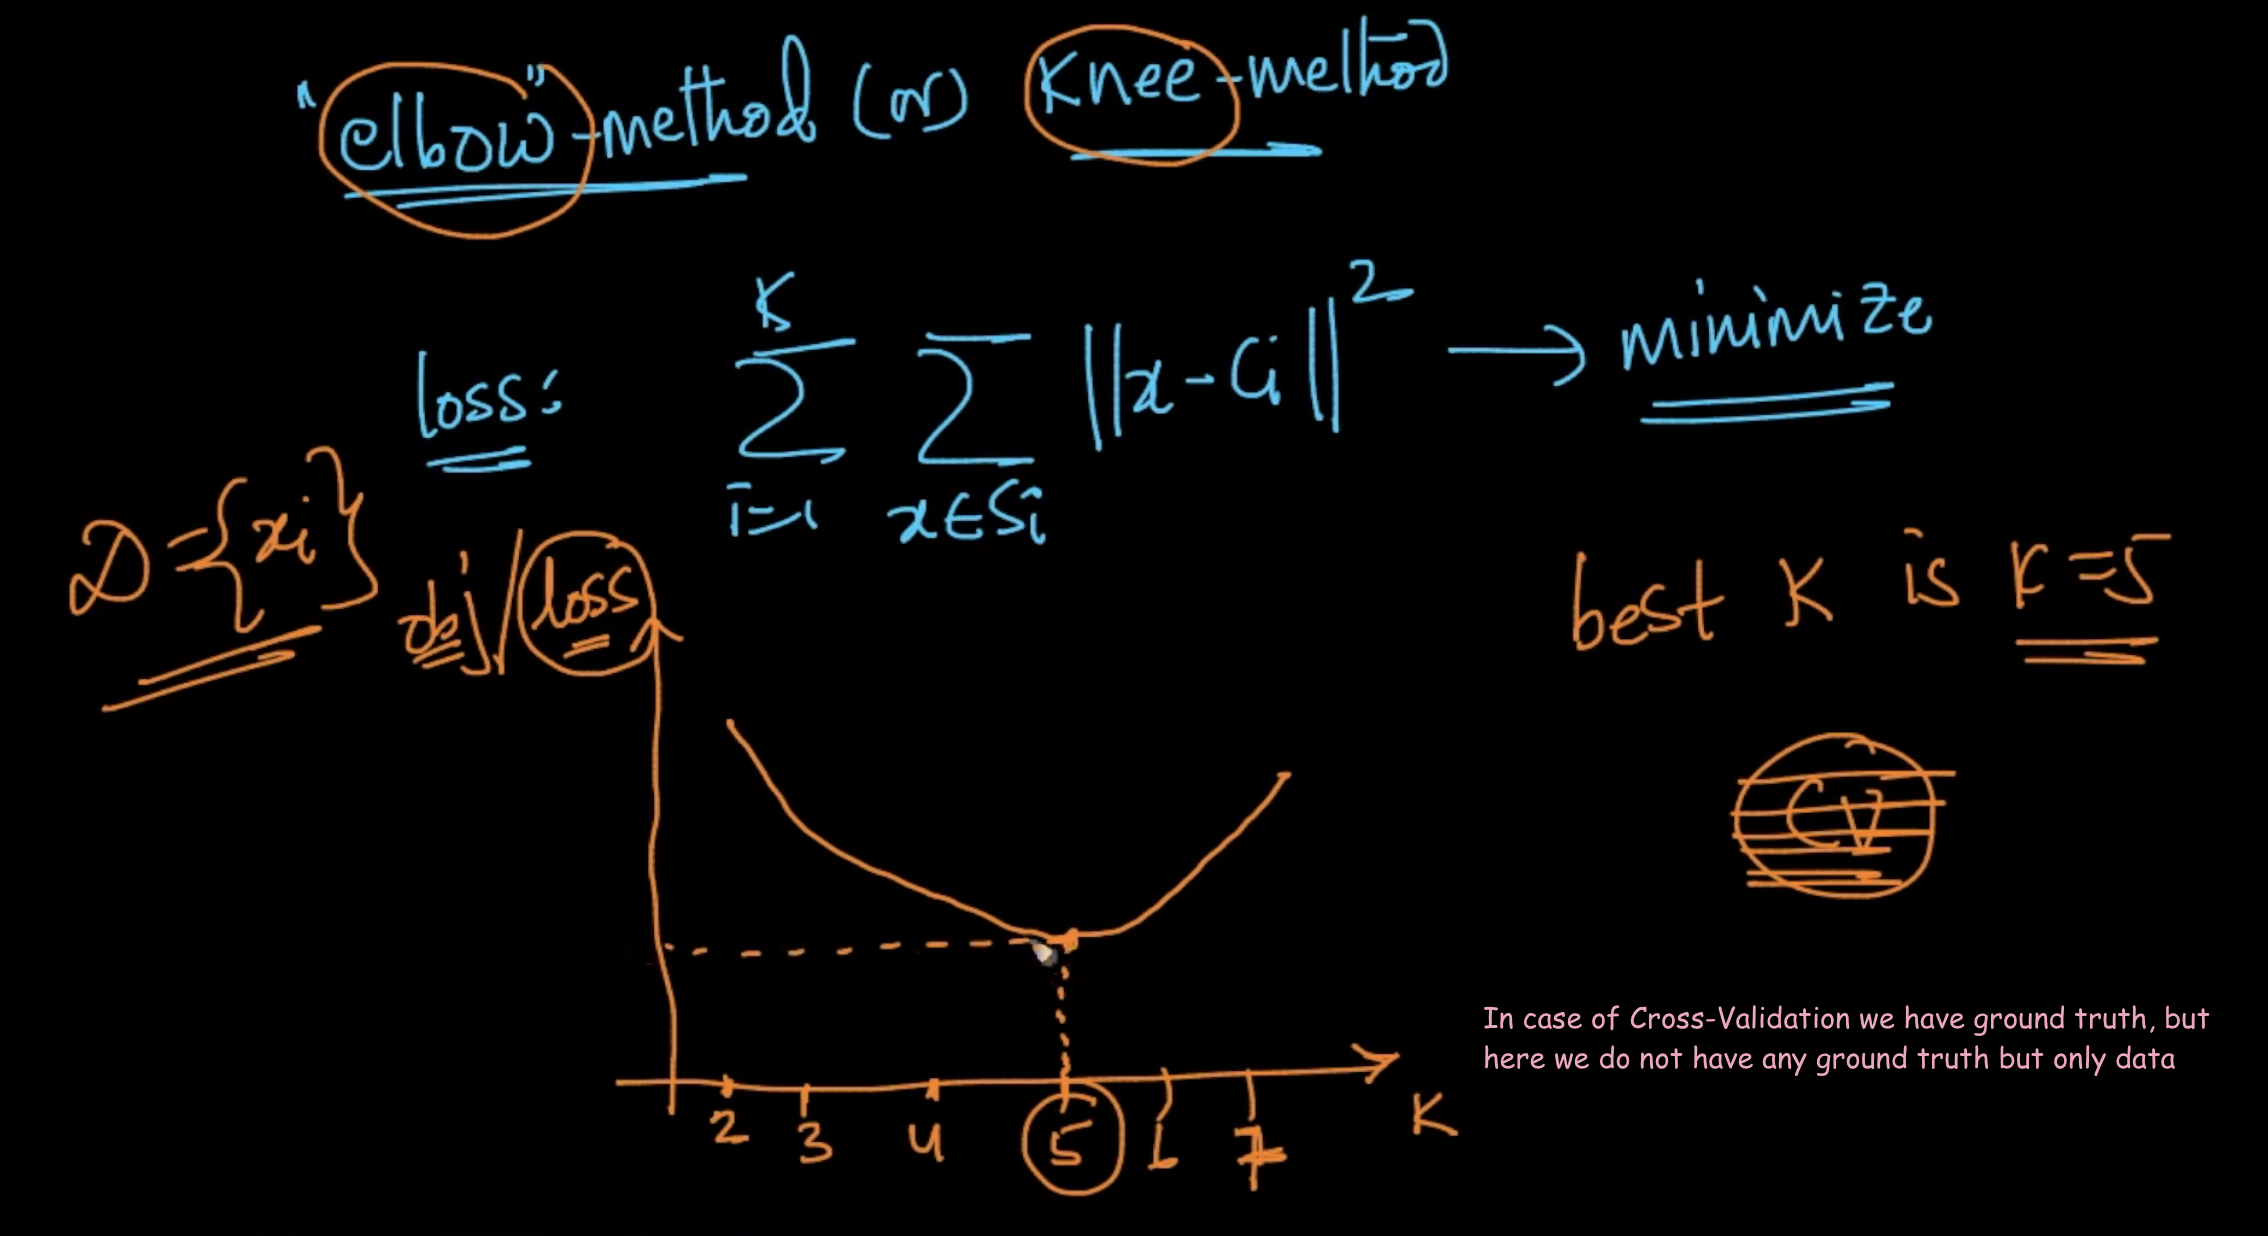 "elbow"-method (or) Knee-method
loss: K∑i=1 ∑x∈Si ||x-Ci||² → minimize
D={xi}
obj/loss
best K is K=5
CV
In case of Cross-Validation we have ground truth, but
here we do not have any ground truth but only data
2 3 4 5 6 7 K